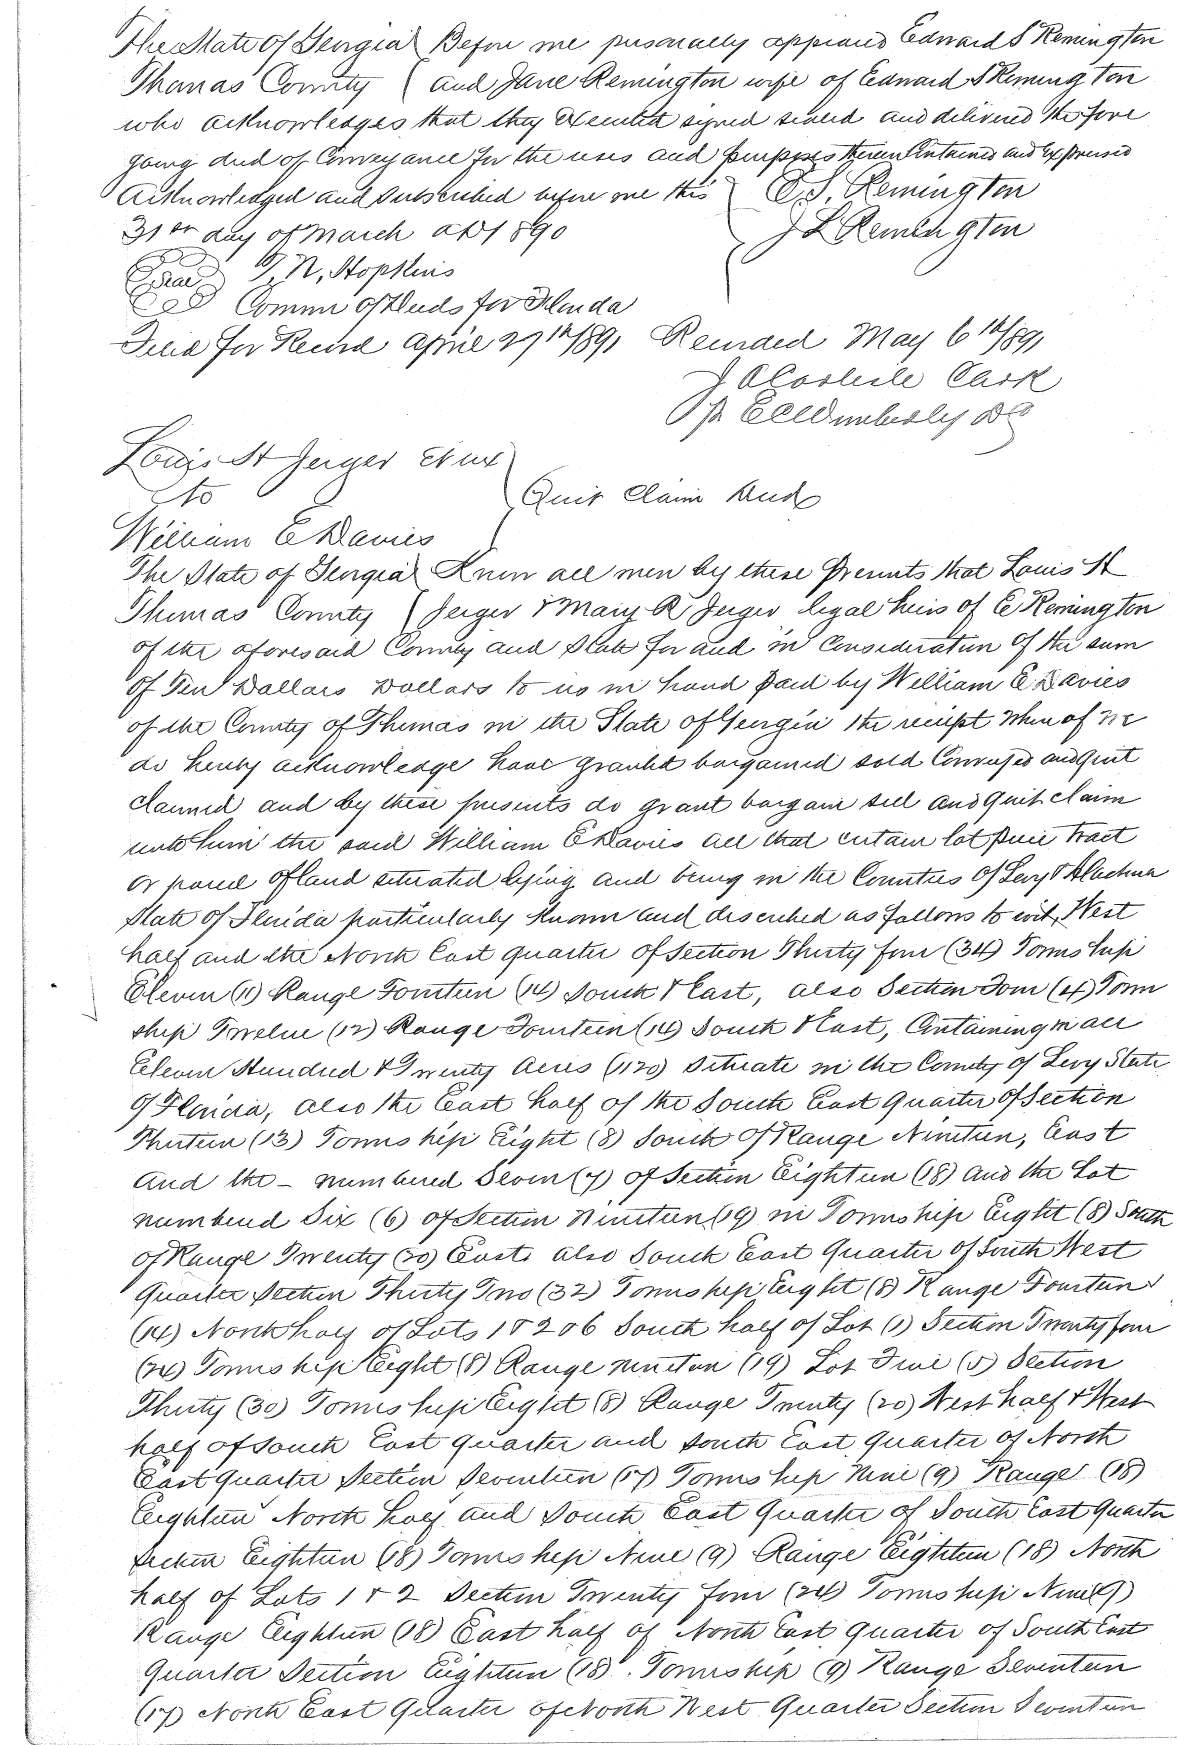 The State of Georgia } Before me personally appeared Edward S Remington
Thomas County { and Jane Remington wife of Edward S Remington
who acknowledges that they Executed signed sealed and delivered the fore
going deed of Conveyance for the uses and purposes therein Contained and Expressed
Acknowledged and subscribed before me this } E.S. Remington
31st day of March AD 1890 J L Remington
Seal T. N. Hopkins
Commr of Deeds for Florida
Filed for Record April 29th/89, Recorded May 6th/89,
J A Carlisle Clerk
Pr DC
Louis St Jerger et ux
to } Quit Claim Deed
William E Davies
The State of Georgia } Know all men by these Presents that Louis St
Thomas County { Jerger & Mary R Jerger legal heirs of E Remington
of the aforesaid County and State for and in Consideration of the sum
of Ten Dollars Dollars to us in hand paid by William E Davies
of the County of Thomas in the State of Georgia the receipt where of we
do hereby acknowledge have granted bargained sold Conveyed and quit
claimed and by these presents do grant bargain sell and Quit claim
unto him the said William E Davies all that certain lot piece tract
or parcel of land situated lying and being in the Counties of Levy & Alachua
State of Florida particularly known and described as follows to wit, West
half and the North East quarter of Section Thirty four (34) Township
Eleven (11) Range Fourteen (14) South & East, also Section Four (4) Town
ship Twelve (12) Range Fourteen (14) South & East, Containing in all
Eleven Hundred & Twenty Acres (1120) Situate in the County of Levy State
of Florida, also the East half of the South East Quarter of Section
Thirteen (13) Township Eight (8) South of Range Nineteen, East
and the - numbered Seven (7) of Section Eighteen (18) and the Lot
numbered Six (6) of Section Nineteen (19) in Township Eight (8) South
of Range Twenty (20) East also South East Quarter of South West
Quarter Section Thirty Two (32) Township Eight (8) Range Fourteen
(14) North half of Lots 1 & 2 06 South half of Lot (1) Section Twenty four
(24) Township Eight (8) Range nineteen (19) Lot Five (5) Section
Thirty (30) Township Eight (8) Range Twenty (20) West half & West
half of South East quarter and South East Quarter of North
East quarter Section Seventeen (17) Township Nine (9) Range (18)
Eighteen North half and South East Quarter of South East Quarter
Section Eighteen (18) Township Nine (9) Range Eighteen (18) North
half of Lots 1 & 2 Section Twenty four (24) Township Nine (9)
Range Eighteen (18) East half of North East Quarter of South East
Quarter Section Eighteen (18) Township (9) Range Seventeen
(17) North East Quarter of North West Quarter Section Seventeen